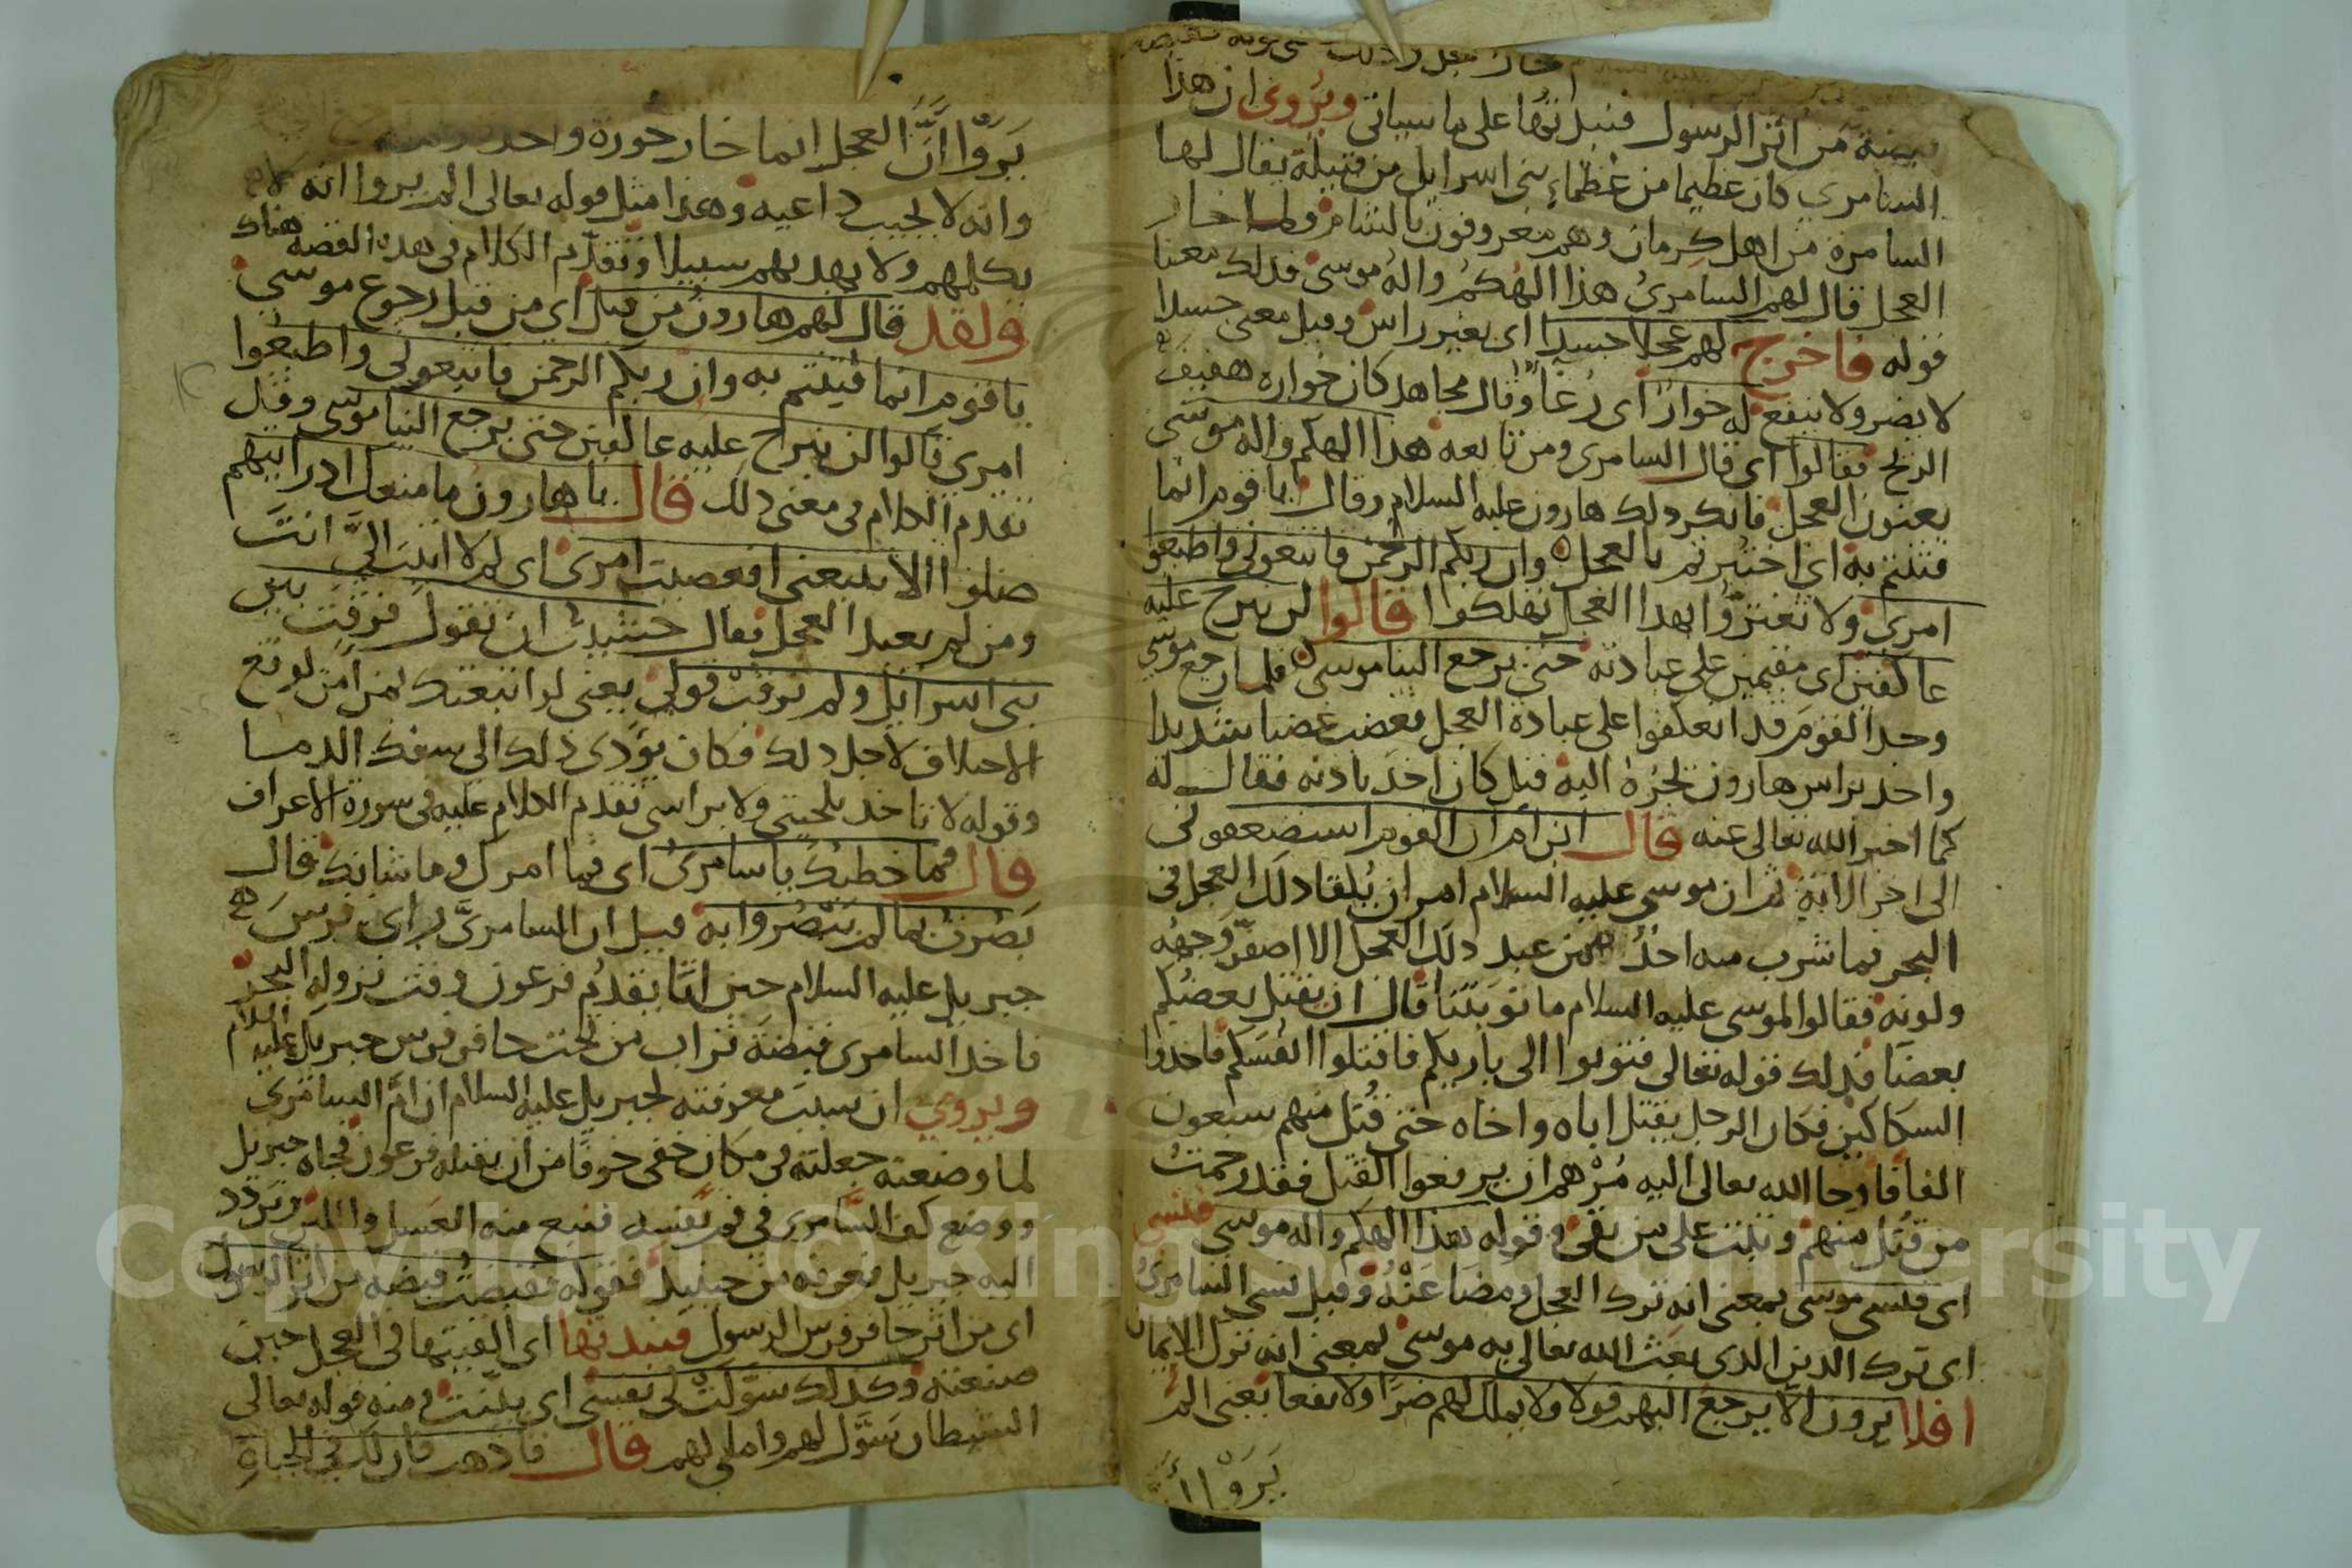 خار فجعل ولذلك
من أثر الرسول فنبذتها على ما سياتي ويروى ان هذا
السامري كان عظيما من عظماء بني اسرايل من قبيلة يقال لها
السامرة من اهل كرمان وهم معروفون بالشام ولما خار
العجل قال لهم السامري هذا الهكم واله موسى فذلك معنا
قوله فاخرج لهم عجلا جسدا اي بغير راس وقيل معنى جسدا
لا يضر ولا ينفع له خوار اي رغا وقال مجاهد كان خواره هفيف
الريح فقالوا اي قال السامري ومن تابعه هذا الهكم واله موسى
يعنون العجل فانكر ذلك هارون عليه السلام وقال يا قوم انما
فتنتم به اي اختبرتم بالعجل وان ربكم الرحمن فاتبعوني واطيعوا
امري ولا تغتروا بهذا العجل تهلكوا قالوا لن نبرح عليه
عاكفين اي مقيمين على عبادته حتى يرجع الينا موسى فلما رجع موسى
وجد القوم قد انعكفوا على عبادة العجل فغضب غضبا شديدا
واخذ براس هارون يجره اليه قيل كان اخذ باذنه فقال له
كما اخبر الله تعالى عنه قال ابن ام ان القوم استضعفوني
الى اخر الاية ثم ان موسى عليه السلام امر ان يلقا ذلك العجل في
البحر فما شرب منه احد ممن عبد ذلك العجل الا اصفر وجهه
ولونه فقالوا لموسى عليه السلام ما توبتنا قال ان يقتل بعضكم
بعضا فذلك قوله تعالى فتوبوا الى باريكم فاقتلوا انفسكم فاخذوا
السكاكين فكان الرجل يقتل اباه واخاه حتى قتل منهم سبعون
الفا فاوحا الله تعالى اليه مرهم ان يرفعوا القتل فقد رحمت
من قتل منهم وتبت على من بقي وقوله هذا الهكم واله موسى فنسي
اي فنسي موسى بمعنى انه ترك العجل ومضا عنه وقيل نسي السامري
اي ترك الدين الذي بعث الله تعالى به موسى بمعنى انه ترك الايمان
افلا يرون الا يرجع اليهم قولا ولا يملك لهم ضرا ولا نفعا يعني الم
يروا ان
يروا ان العجل انما خار خورة واحدة
وانه لا يجيب داعيه وهذا مثل قوله تعالى الم يروا انه لا
يكلمهم ولا يهديهم سبيلا وتقدم الكلام في هذه القصة هناك
ولقد قال لهم هارون من قبل اي من قبل رجوع موسى
يا قوم انما فتنتم به وان ربكم الرحمن فاتبعوني واطيعوا
امري قالوا لن نبرح عليه عاكفين حتى يرجع الينا موسى وقيل
تقدم الكلام في معنى ذلك قال يا هارون ما منعك اذ رايتهم
ضلوا الا تتبعني افعصيت امري اي لم لا اتيت الي انت
ومن لم يعبد العجل فقال خشيت ان تقول فرقت بين
بني اسرائيل ولم ترقب قولي يعني لو اتبعتك لم امن لوقع
الاختلاف لاجل ذلك فكان يؤدي ذلك الى سفك الدما
وقوله لا تاخذ بلحيتي ولا براسي تقدم الكلام عليه في سورة الاعراف
قال فما خطبك يا سامري اي فما امرك وما شانك قال
بصرت بما لم يبصروا به قيل ان السامري راى فرس
جبريل عليه السلام حين اتا يقدم فرعون وقت نزوله البحر
فاخذ السامري قبضة تراب من تحت حافر فرس جبريل عليه السلام
ويروي ان سبب معرفته لجبريل عليه السلام ان ام السامري
لما وضعته جعلته في مكان خفي خوفا من ان يقتله فرعون فجاه جبريل
ووضع كف السامري في فم نفسه فنبع منه العسل واللبن وتردد
اليه جبريل فعرفه من حينيذ فقوله فقبضت قبضة من اثر الرسول
اي من اثر حافر فرس الرسول فنبذتها اي القيتها في العجل حين
صنعته وكذلك سولت لي نفسي اي زينت ومنه قوله تعالى
الشيطان سول لهم واملي لهم قال فاذهب فان لك في الحياة
Copyright © King Saud University